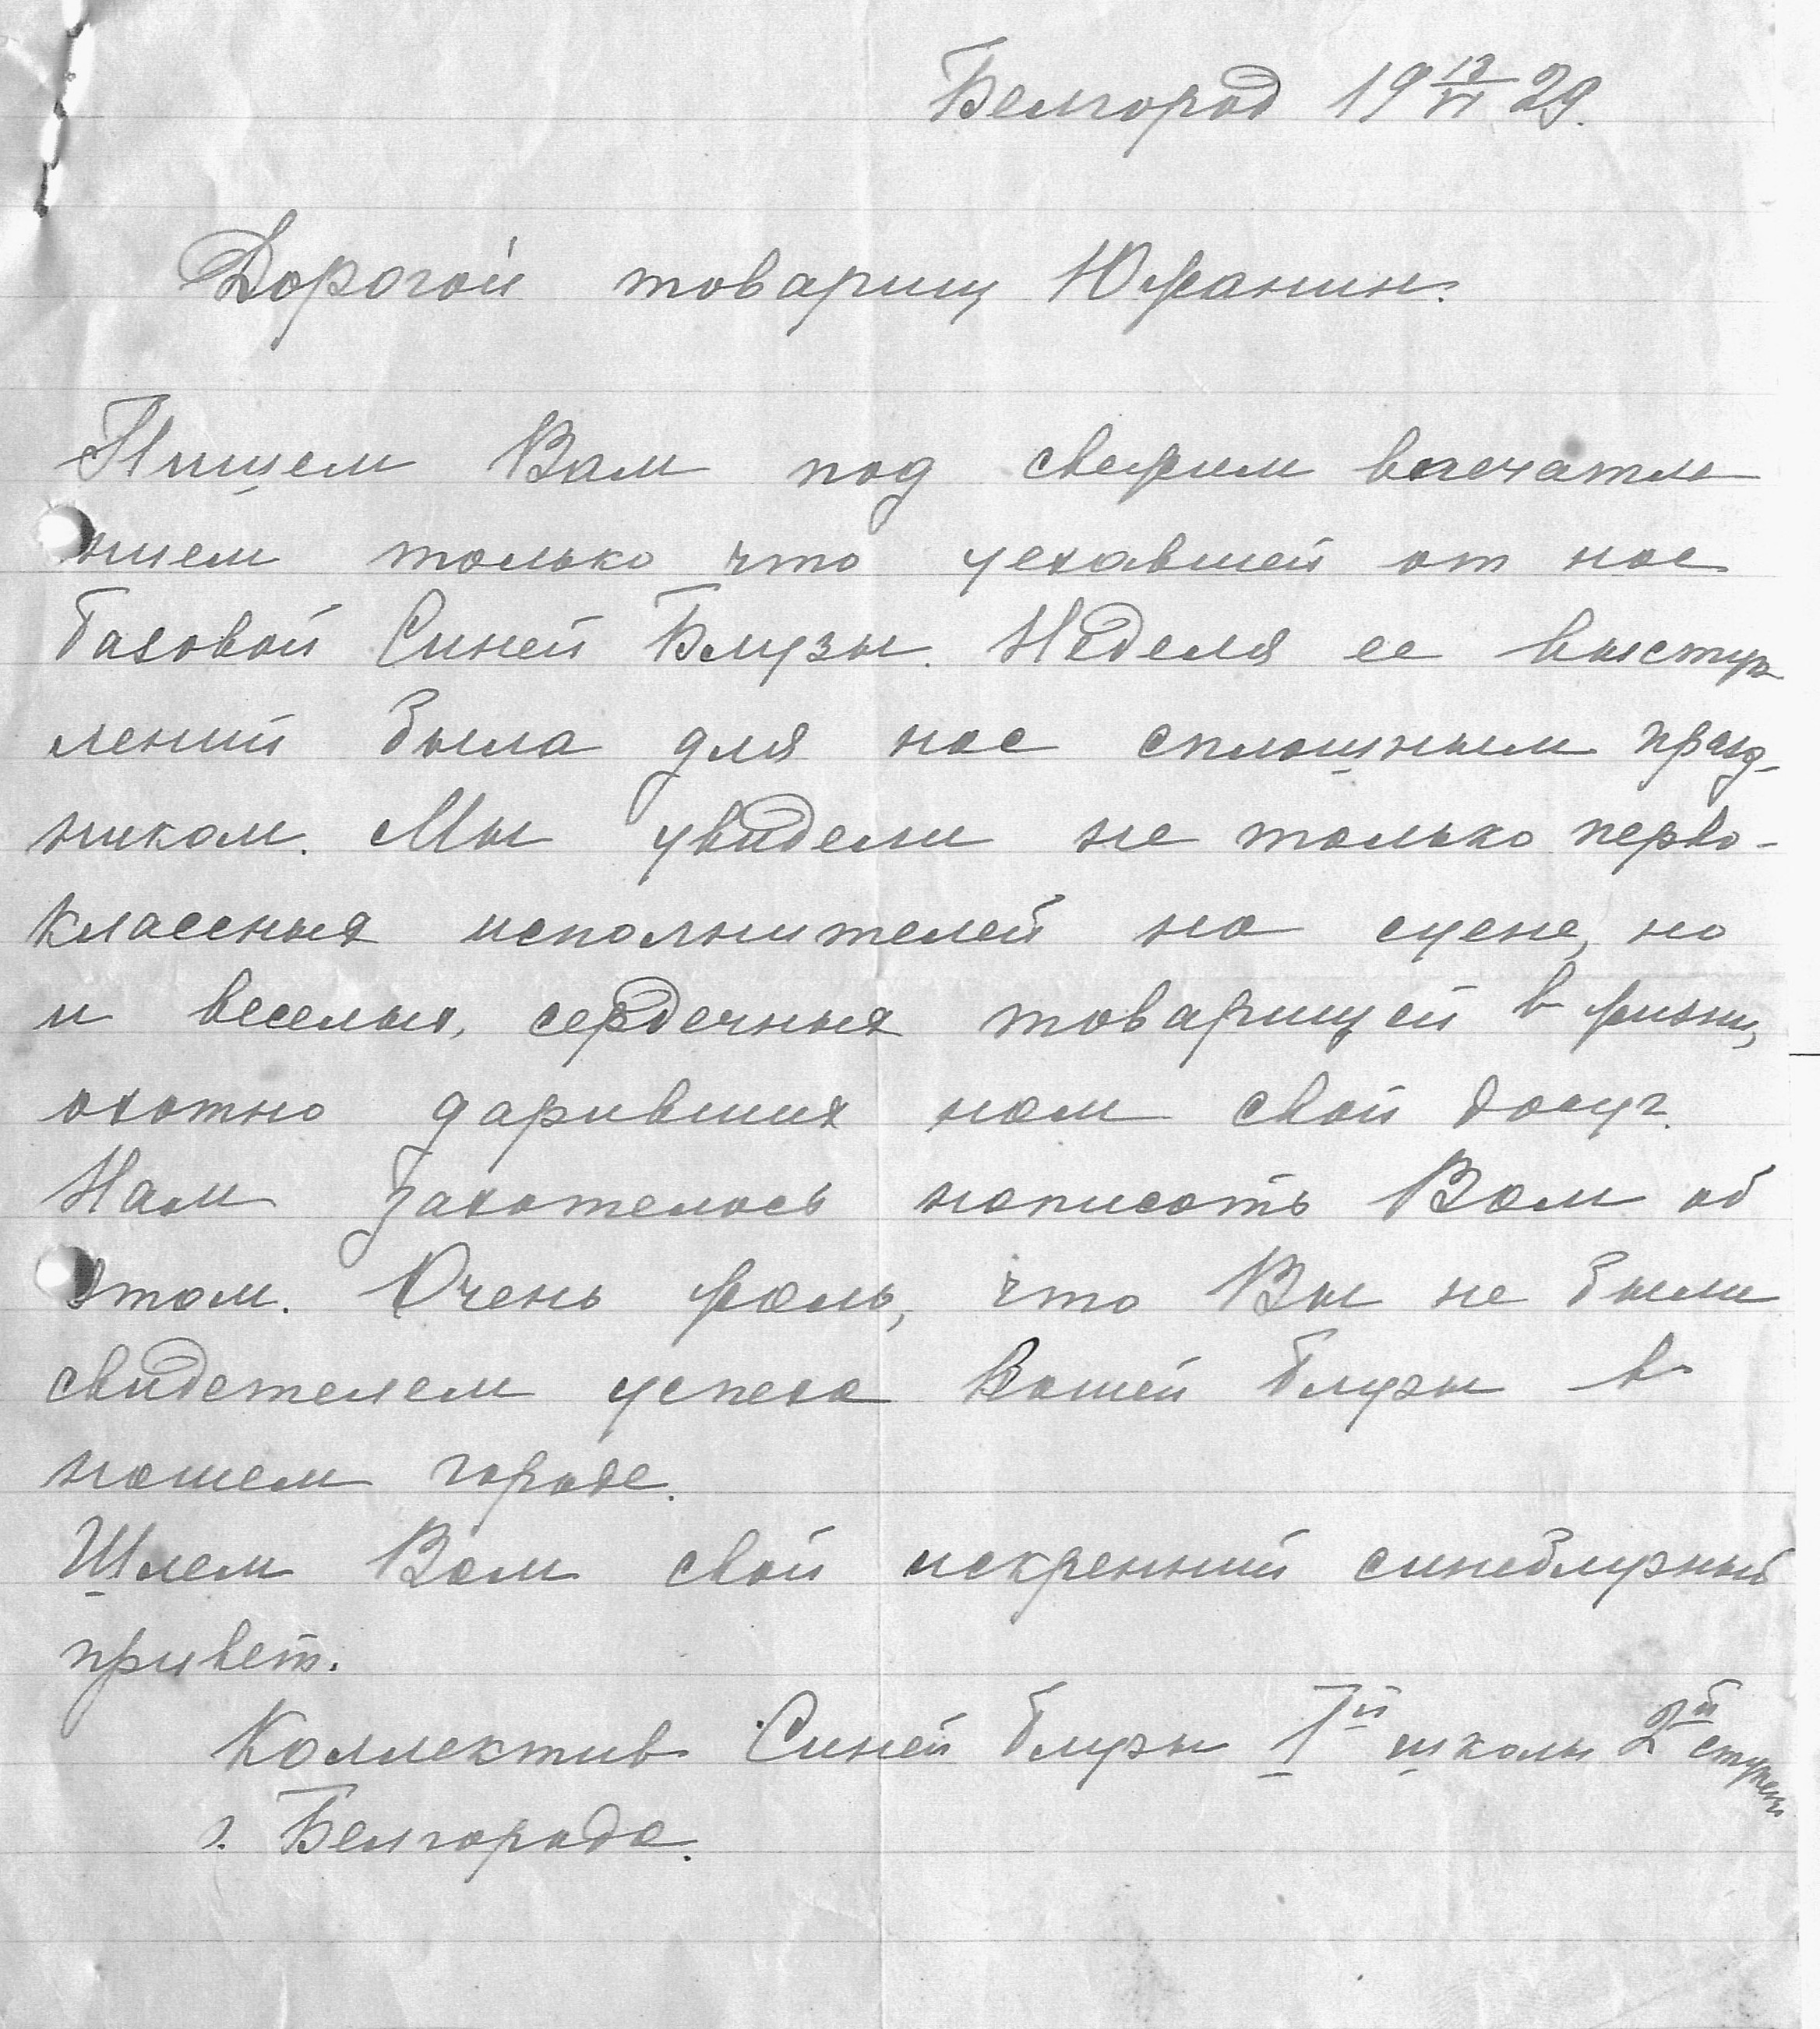 Белгород 19 12/VI 29.
Дорогой товарищ Южанин.
Пишем Вам под свежим впечатле
нием только что уехавшей от нас
базовой Синей Блузы. Неделя ее выступ
лений была для нас сплошным празд-
ником. Мы увидели не только перво-
классных исполнителей на сцене, но
и веселых, сердечных товарищей в жизни,
охотно даривших нам свой досуг.
Нам захотелось написать Вам об
этом. Очень жаль, что Вы не были
свидетелем успеха Вашей блузы в
нашем городе.
Шлем Вам свой искренний синеблузный
привет.
Коллектив Синей блузы 1й школы 2й ступени
г. Белгорода.